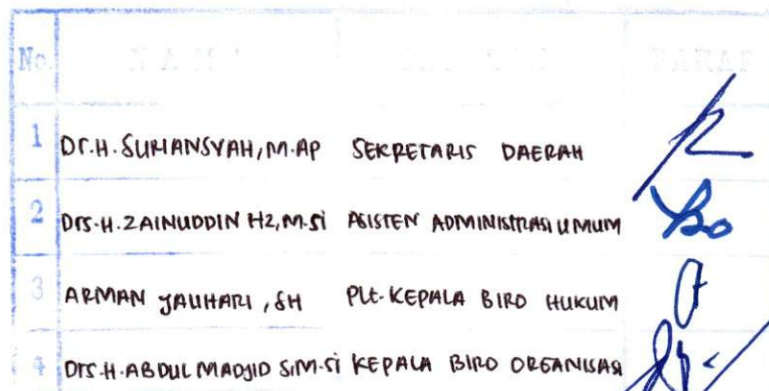 No. N A M A PARAF
1 Dr.H. SURIANSYAH, M.AP SEKRETARIS DAERAH
2 Drs.H. ZAINUDDIN HZ, M.Si ASISTEN ADMINISTRASI UMUM
3 ARMAN JAUHARI, SH Plt. KEPALA BIRO HUKUM
4 Drs.H. ABDUL MADJID S, M.Si KEPALA BIRO ORGANISASI